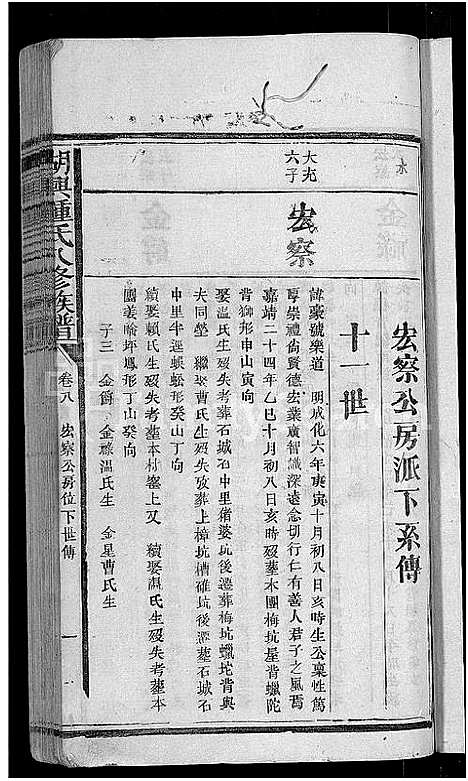 宏察公房派下系傳
十一世
大光
六子
宏察
諱豪號樂道 明成化六年庚寅十月初八日亥時生公稟性篤
厚崇禮尙賢德宏業廣智識深遠念切行仁有善人君子之風焉
嘉靖二十四年乙巳十月初八日亥時歿葬木團梅坑屋背蠟陀
背獅形申山寅向
娶溫氏生歿失考葬石城石中里豬婆坑後遷葬梅坑蠟坨背與
夫同塋 繼娶曹氏生歿失攷葬上樟坑槽碓坑後遷葬石城石
中里牛逕蜈蚣形癸山丁向
續娶賴氏生歿失考葬本村窰上又 續娶溫氏生歿失考葬本
團姜 坪鳳形丁山癸向
子三 金爵 金祿溫氏生 金星曹氏生
湖興鍾氏八修族譜
卷八 宏察公房位下世傳 一